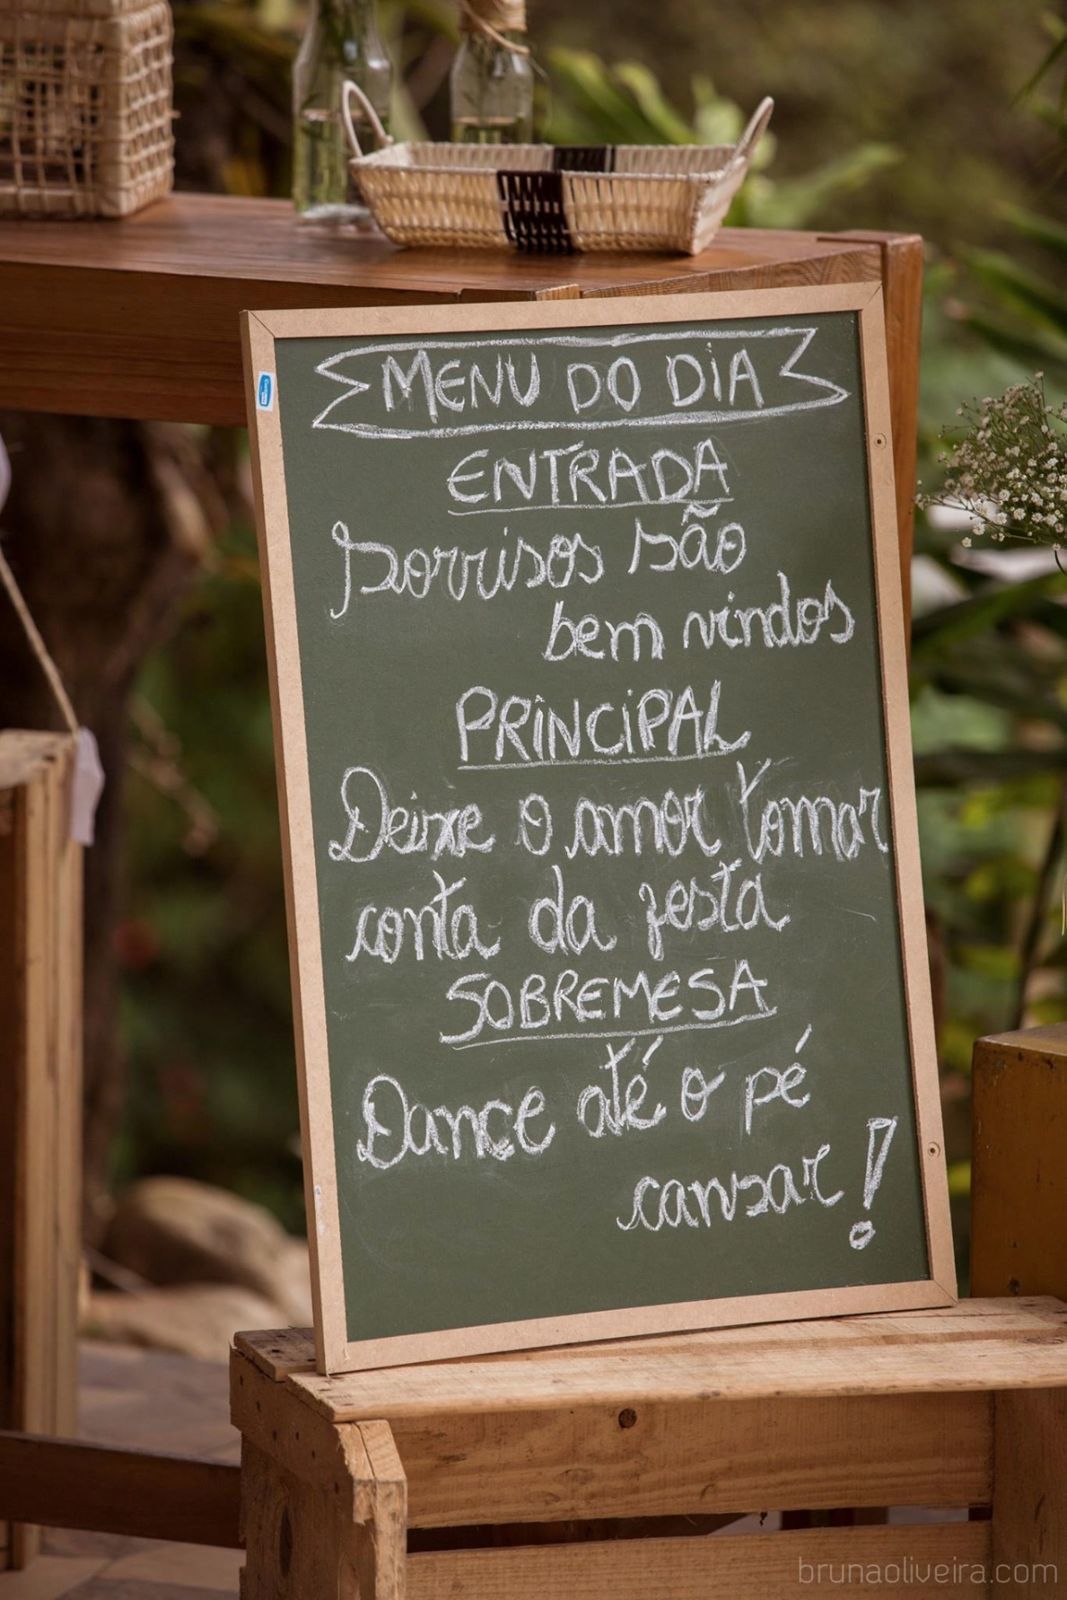 MENU DO DIA
ENTRADA
Sorrisos são
bem vindos
PRINCIPAL
Deixe o amor tomar
conta da festa
SOBREMESA
Dance até o pé
cansar!
brunaoliveira.com